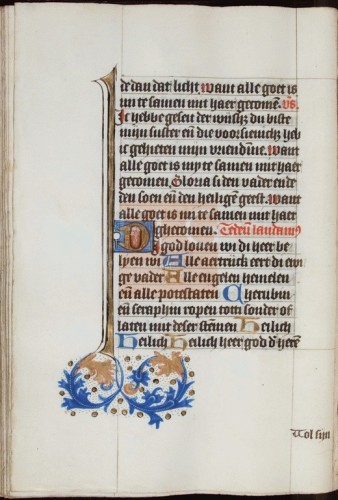 de dan dat licht. want alle goet is
mi te samen mit haer gecomen v̄s.
Ic hebbe geseit der wijsh̄z du biste
mijn suster en̄ die voorsienich̄z heb
ic gehieten mijn vriendīne. want
alle goet is my te samen mit haer
gecomen. Gloria si den vader ende
den soen en̄ den heiligē geest. want
alle goet is mi te samen mit haer
ghecomen. Te deū laudam9
O god louen wi di heer be
lyen wi Alle aertrijck eert di ewi
ge vader Alle engelen hemelen
en̄ alle potestaten Cherubim
en̄ seraphin ropen tot di sonder of
laten mit deser stēmen Heilich
Heilich Heilich heer god d' heer̄
Uol sijn